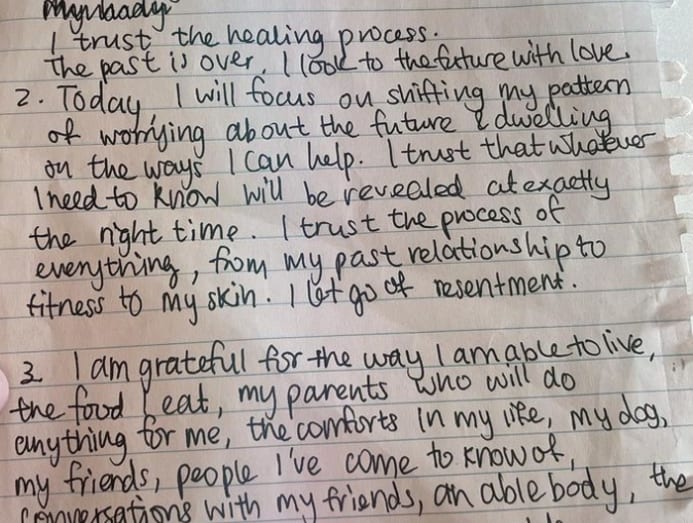 my body
I trust the healing process.
The past is over, I look to the future with love.
2. Today, I will focus on shifting my pattern
of worrying about the future & dwelling
on the ways I can help. I trust that whatever
I need to know will be revealed at exactly
the right time. I trust the process of
everything, from my past relationship to
fitness to my skin. I let go of resentment.
3. I am grateful for the way I am able to live,
the food I eat, my parents who will do
anything for me, the comforts in my life, my dog,
my friends, people I've come to know of,
conversations with my friends, an able body, the